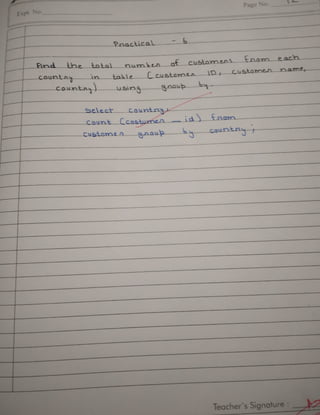 Expt. No.
Page No. 12
Practical - 6
Find the total number of customers from each
country in table (customer ID, customer name,
country) using group by.
Select country,
count (costumer _ id) from
customer group by country ;
Teacher's Signature :